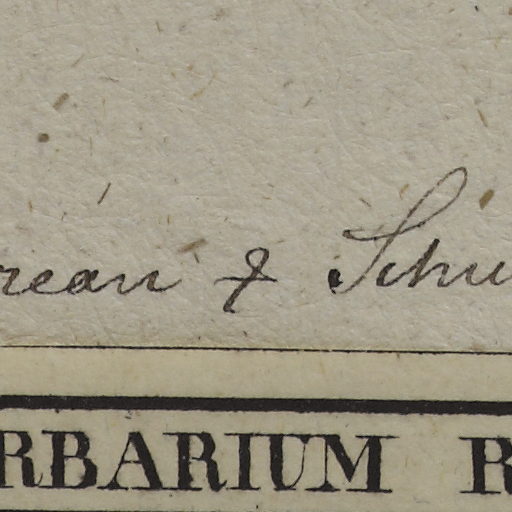 reani & Schu
RBARIUM R